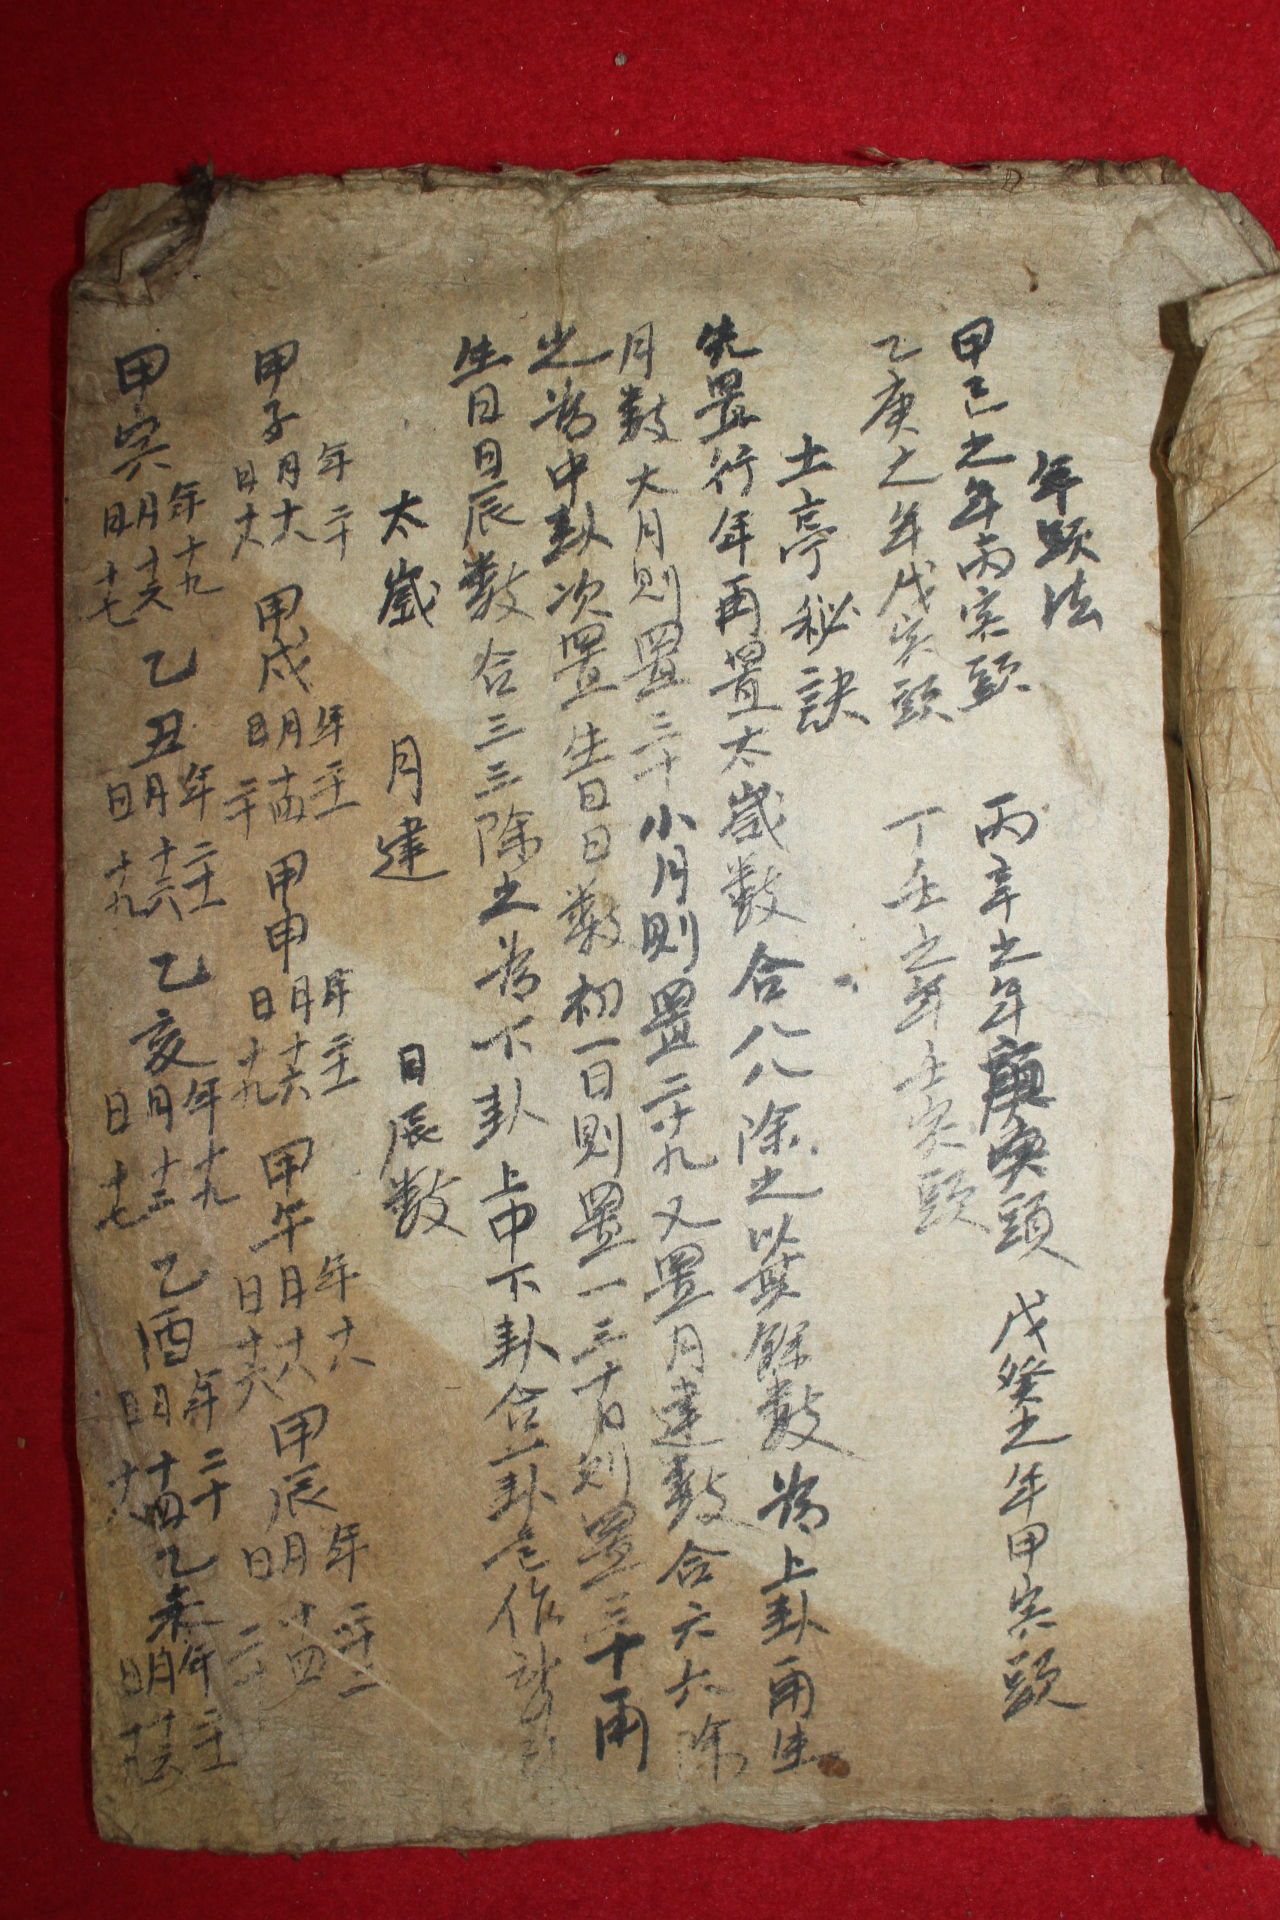 年頭法
甲己之年丙寅頭 丙辛之年庚寅頭 戊癸之年甲寅頭
乙庚之年戊寅頭 丁壬之年壬寅頭
土亭秘訣
先置行年再置太歲數合八八除之以其餘數為上卦再生
月數大月則置三十小月則置二十九又置月建數合六六除
之為中卦次置生日日數初一日則置一三十日則置三十再
生日日辰數合三三除之為下卦上中下卦合一卦
太歲 月建 日辰數
甲子 年二十 月十八 日十八 甲戌 年二十一 月十四 日二十 甲申 年二十一 月十六 日十九 甲午 年十八 月十八 日十六 甲辰 年二十二 月十四
甲寅 年十九 月十六 日十七 乙丑 年二十一 月十六 日十九 乙亥 年十九 月十二 日十七 乙酉 年二十 月十四 日十八 乙未 年二十一 月十六 日十九